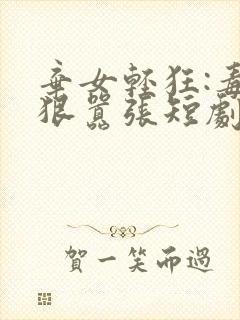 棄女輕狂:毒
狠囂張短劇
賀一笑而過